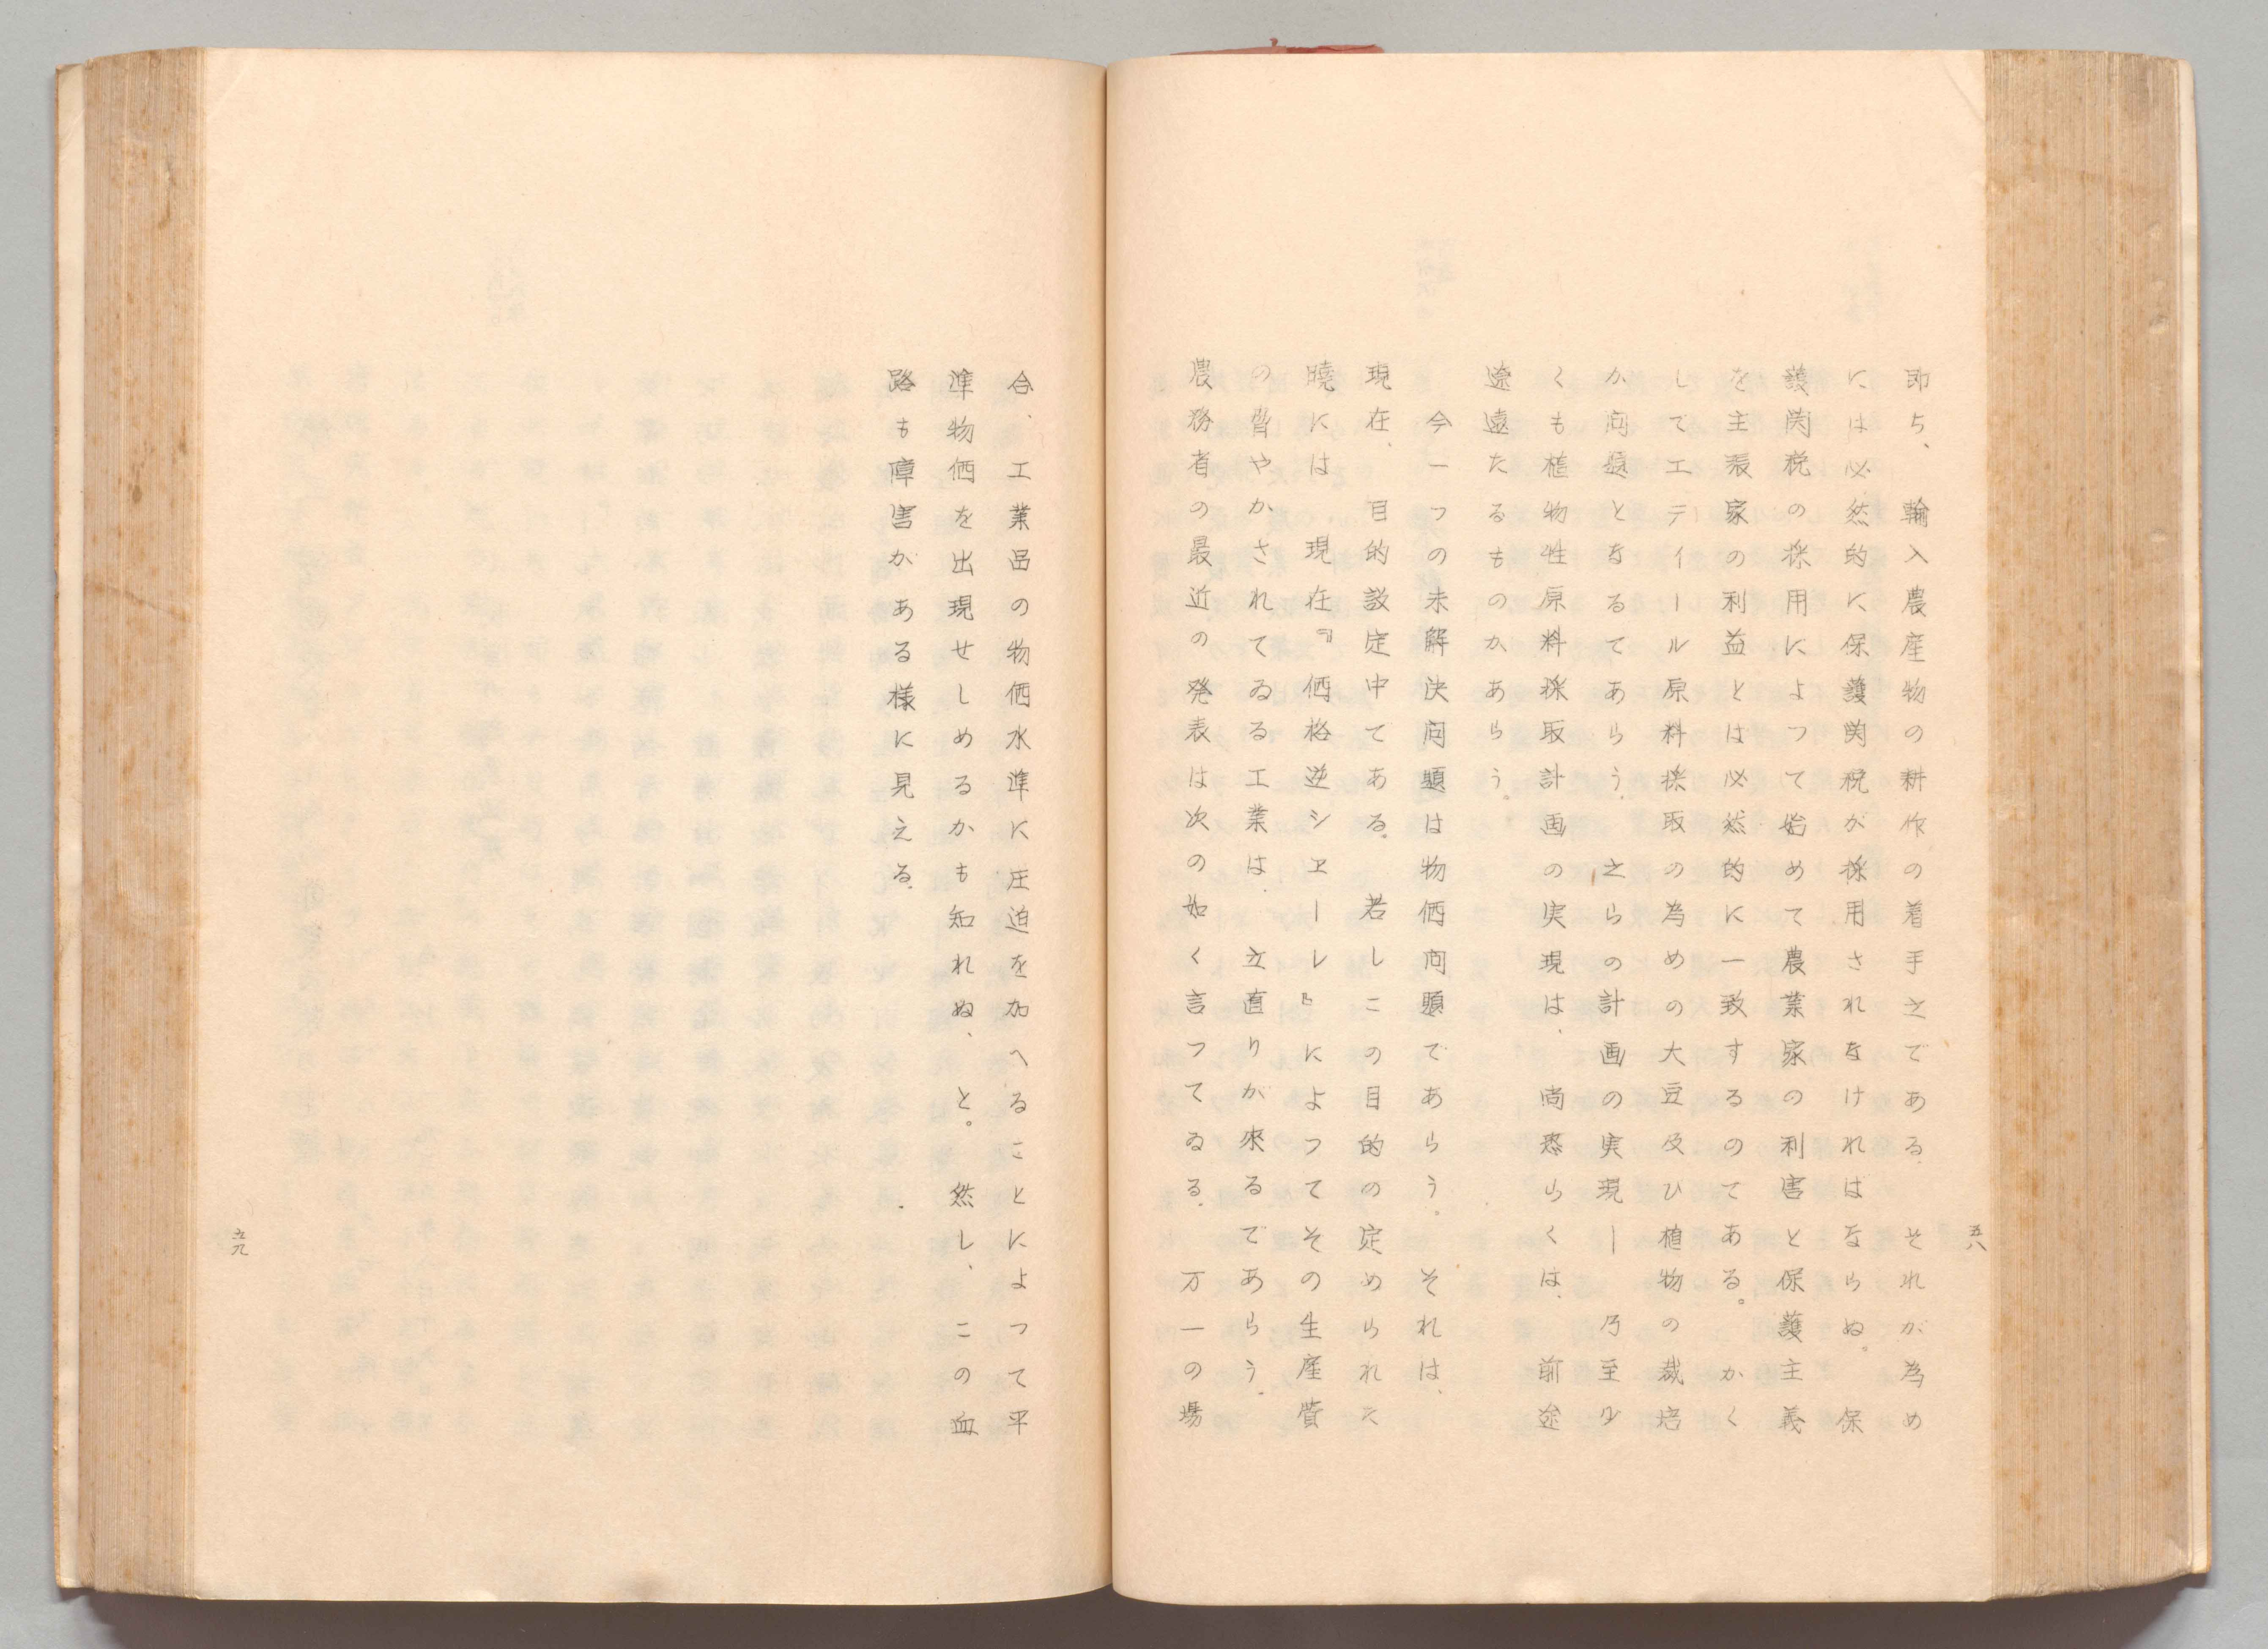 五八
即ち、輸入農産物の耕作の着手之である。それが為め
には必然的に保護関税が採用されなければならぬ。保
護関税の採用によつて始めて農業家の利害と保護主義
を主張家の利益とは必然的に一致するのてある。かく
してエテイール原料採取の為めの大豆及ひ植物の裁培
か問題となるてあらう。之らの計画の実現ー乃至少
くも植物性原料採取計画の実現は、尚恐らくは、前途
遼遠たるものかあらう。
今一つの未解決問題は物価問題であらう。それは、
現在、目的設定中てある。若しこの目的の定められた
暁には現在『価格逆シエーレ』によつてその生産費
の脅やかされてゐる工業は、立直りが來るであらう。
農務者の最近の発表は次の如く言つてゐる。万一の場
合、工業品の物価水準に圧迫を加へることによつて平
準物価を出現せしめるかも知れぬ、と。然し、この血
路も障害がある様に見える。
五九